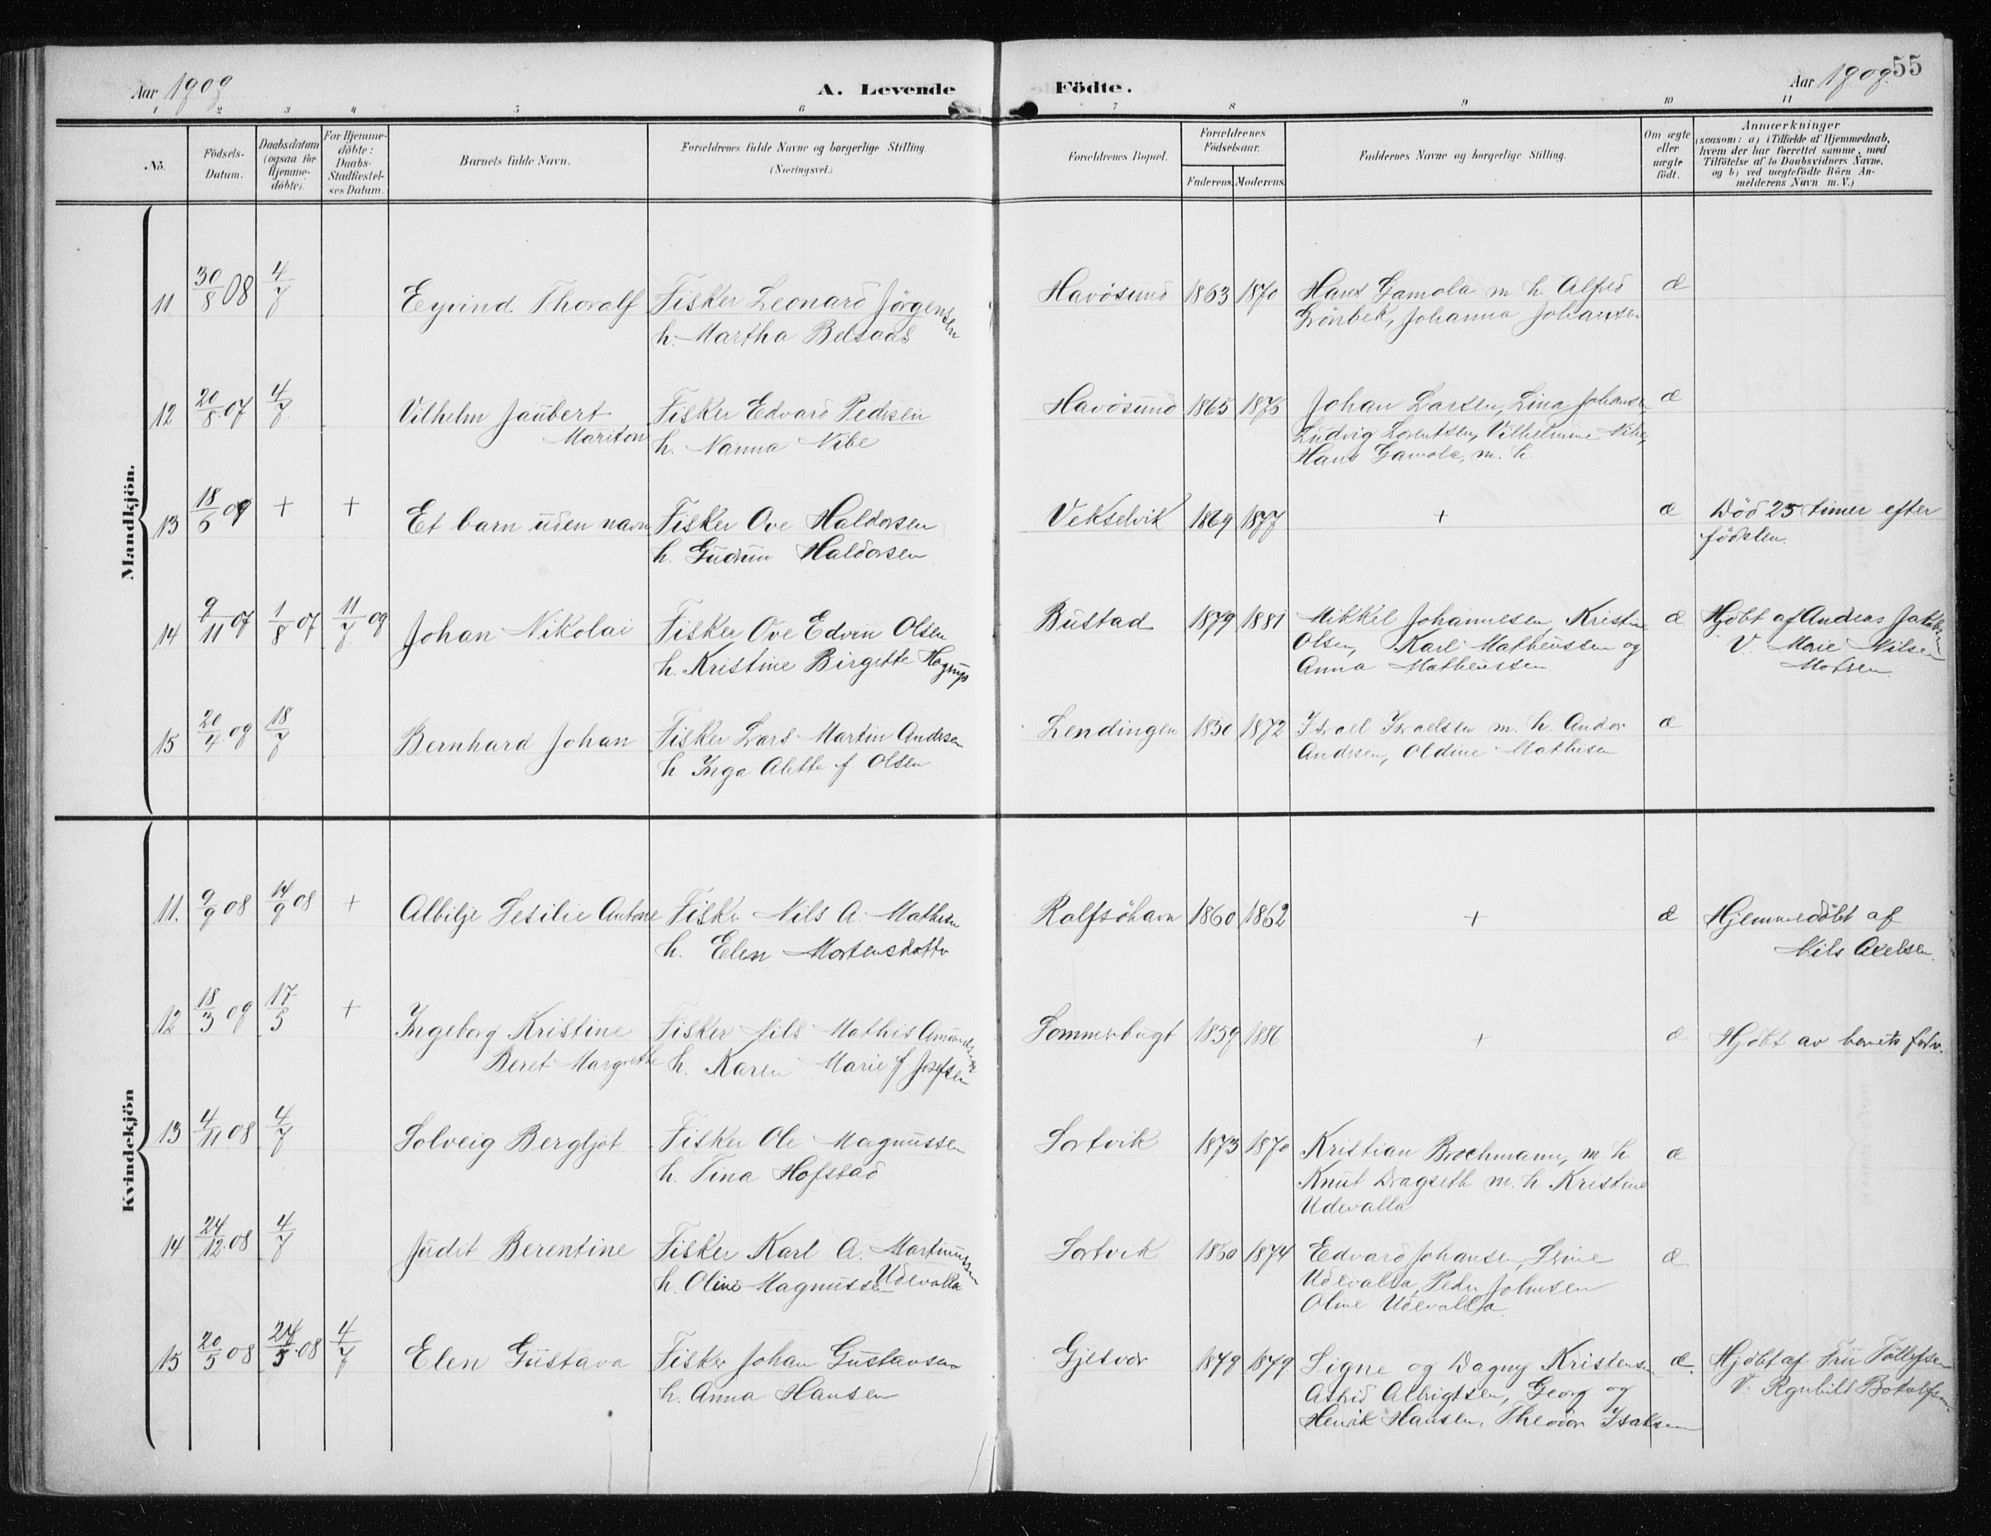 Aar 1909
A. Levende Födte.
Aar 1909. 55
1 2 3 4 5 6 7 8 9 10 11
No. Födsels-Datum. Daabsdatum (ogsaa for Hjemmedöbte). For Hjemmedöbte: Daabs-Stadfæstelses Datum. Barnets fulde Navn. Forældrenes fulde Navne og borgerlige Stilling. (Næringsvei.) Forældrenes Bopæl. Forældrenes Födselsaar. Faderens. Moderens. Faddernes Navne og borgerlige Stilling. Om ægte eller uægte födt. Anmærkninger (saasom: a) i Tilfælde af Hjemmedaab, hvem der har forrettet samme, med Tilföielse af to Daabsvidners Navne, og b) ved uægtefödte Börn Anmelderens Navn m. V.)
Mandkjön.
11 30/8 08 4/7 Eyvind Thoralf Fisker Leonard Jørgensen Havösund 1863 1870 Hans Gamola m. h. Alfred æ
h. Martha Belsaas Grönbek, Johanna Johansen
12 20/8 07 4/7 Vilhelm Jaubert Fisker Edvard Pedersen Havösund 1865 1875 Johan Larsen, Lina Johansen æ
Mariton h. Nanna Nibe Ludvig Lorentsen, Vilhelmine Nibe,
Hans Gamola, m. h.
13 18/6 09 + + Et barn uden navn Fisker Ove Haldorsen Vekselvik 1869 1877 + æ Död 25 timer efter
h. Gudrun Haldorsen födselen.
14 9/11 07 1/8 07 11/7 09 Johan Nikolai Fisker Ove Edvin Olsen Bustad 1879 1881 Mikkel Johannesen, Kristine æ Hjöbt af Andreas Jakobsen
h. Kristine Birgette Hagrup Olsen, Karl Matheussen og V. Marie Nilsen
Anna Matheussen. Madsen
15 20/4 09 18/7 Bernhard Johan Fisker Lars Martin Andersen Lendingen 1850 1872 Israel Israelsen m. h. Andor æ
h. Inga Alette f. Olsen Andersen, Oldine Mathisen
Kvindekjön
11. 9/9 08 14/9 08 + Albilje Sesilie Antone Fisker Nils A. Mathisen Rolfsöhavn 1860 1862 + æ Hjemmedöbt af
h. Elen Mortensdatter Nils Axelsen.
12 18/3 09 17/5 + Ingeborg Kristine Fisker Nils Mathis Amundsen Sommerbugt 1859 1886 + æ Hjöbt av barnets fader.
Beret Margrethe h. Karen Marie f. Josefsen
13 4/11 08 4/7 Solveig Bergljot Fisker Ole Magnussen Sortvik 1873 1870 Kristian Brochmann, m. h. æ
h. Tina Hofstad Knut Dragseth m. h. Kristine
Udevalla
14 24/12 08 4/7 Judit Berentine Fisker Karl A. Martinussen Sortvik 1850 1874 Edvard Johansen, Line æ
h. Oline Magnussen Udevalla Udevalla, Peder Johnsen
Oline Udevalla
15 20/5 08 24/5 08 4/7 Elen Gustava Fisker Johan Gustavsen Gjesvær 1879 1879 Signe og Dagny Kristensen æ. Hjöbt af Fru Tollefsen
h. Anna Hansen Astrid Albrigtsen, Georg og V. Ragnhild Botolfsen
Henrik Hansen, Theodor Isaksen